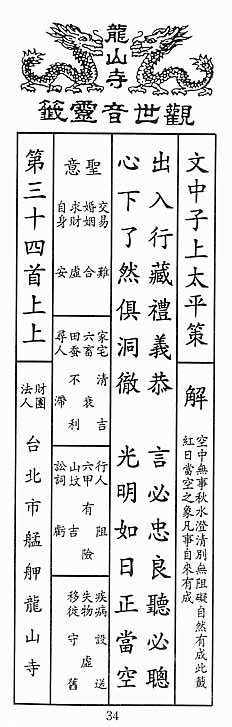 龍山寺
觀世音靈籤
文中子上太平策
解
空中無事秋水澄清別無阻礙自然有成此籤
紅日當空之象凡事自來有成
出入行藏禮義恭 言必忠良聽必聰
心下了然俱洞徹 光明如日正當空
聖意
交易 難
婚姻 合
求財 虛
自身 安
家宅 清吉
六畜 衰
田蠶 不利
尋人 滯
行人 阻
六甲 有險
山墳 吉
訟詞 虧
疾病 設送
失物 虛
移徙 守舊
第三十四首上上
財團法人
台北市艋舺龍山寺
34